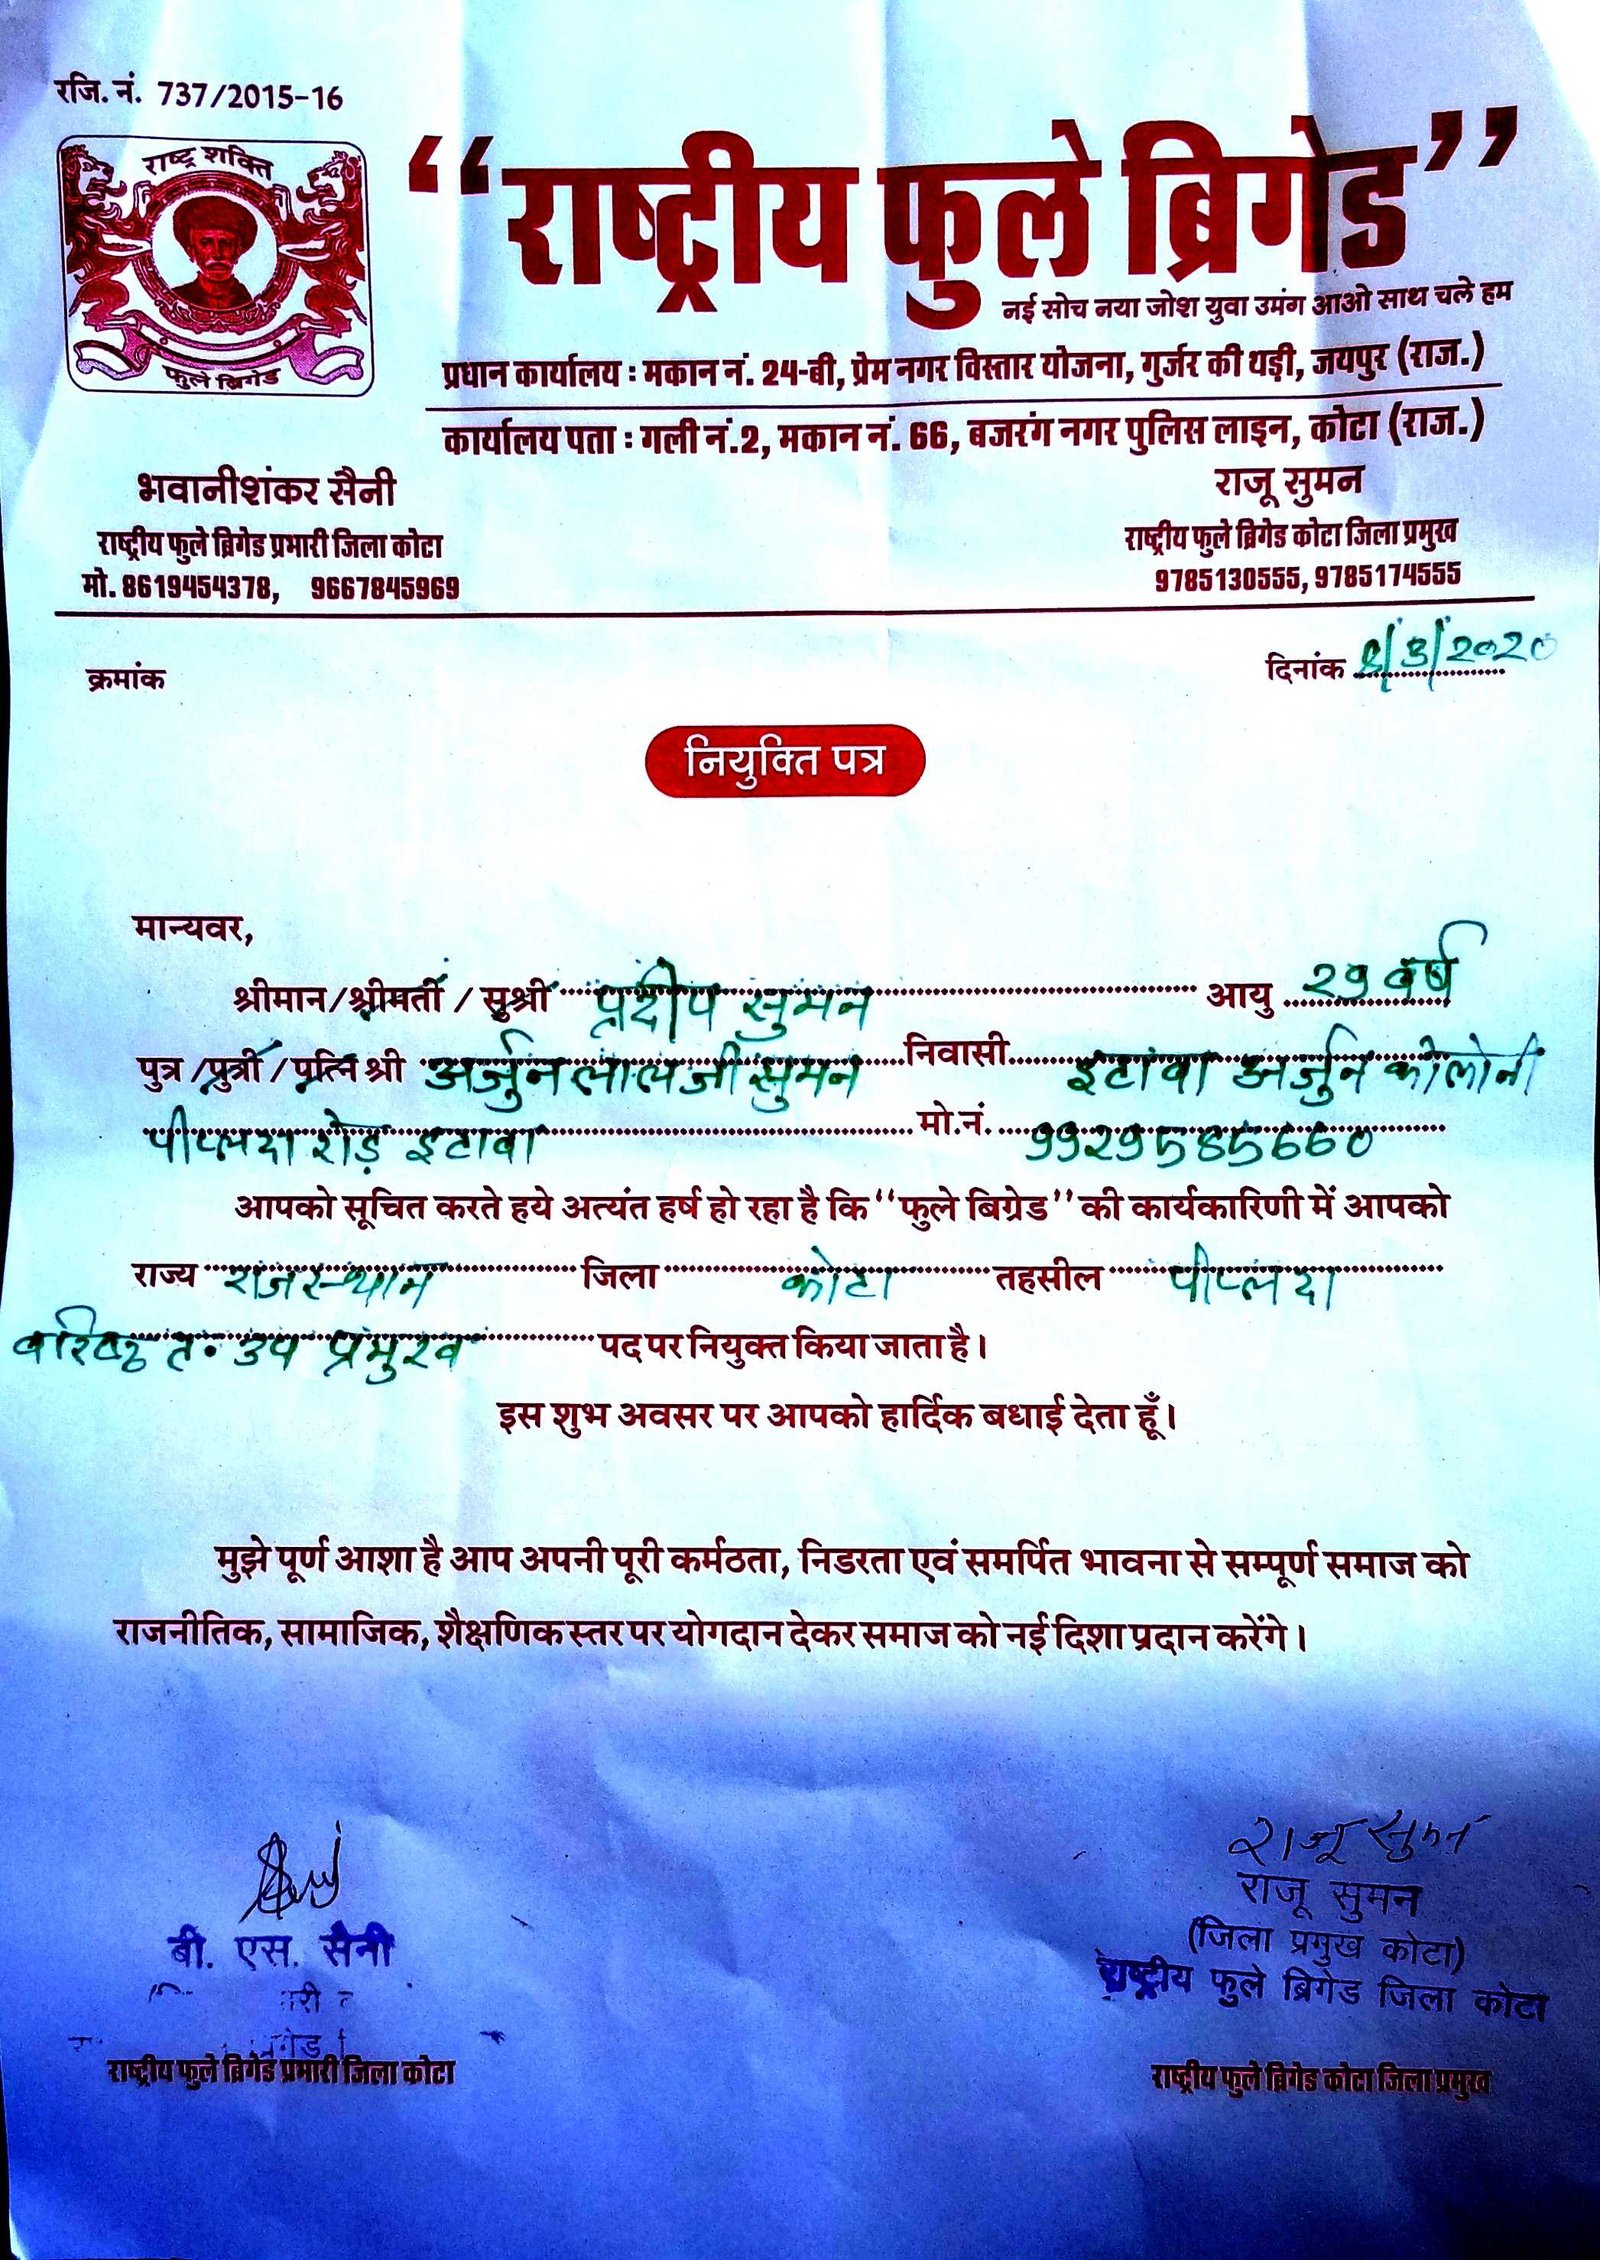 रजि. नं. 737/2015-16
राष्ट्र शक्ति
फुले ब्रिगेड
“राष्ट्रीय फुले ब्रिगेड”
नई सोच नया जोश युवा उमंग आओ साथ चले हम
प्रधान कार्यालय : मकान नं. 24-बी, प्रेम नगर विस्तार योजना, गुर्जर की थड़ी, जयपुर (राज.)
कार्यालय पता : गली नं.2, मकान नं. 66, बजरंग नगर पुलिस लाइन, कोटा (राज.)
भवानीशंकर सैनी
राष्ट्रीय फुले ब्रिगेड प्रभारी जिला कोटा
मो. 8619454378, 9667845969
राजू सुमन
राष्ट्रीय फुले ब्रिगेड कोटा जिला प्रमुख
9785130555, 9785174555
क्रमांक
दिनांक /3/2020
नियुक्ति पत्र
मान्यवर,
श्रीमान/श्रीमती / सुश्री प्रदीप सुमन आयु २९ वर्ष
पुत्र /पुत्री / पत्नि श्री अर्जुन लाल जी सुमन निवासी इटावा अर्जुन कोलोनी
पीपल्दा रोड़ इटावा मो.नं. 9929585660
आपको सूचित करते हये अत्यंत हर्ष हो रहा है कि “फुले बिग्रेड” की कार्यकारिणी में आपको
राज्य राजस्थान जिला कोटा तहसील पीपल्दा
वरिष्ठ त. उप प्रमुख पद पर नियुक्त किया जाता है।
इस शुभ अवसर पर आपको हार्दिक बधाई देता हूँ।
मुझे पूर्ण आशा है आप अपनी पूरी कर्मठता, निडरता एवं समर्पित भावना से सम्पूर्ण समाज को
राजनीतिक, सामाजिक, शैक्षणिक स्तर पर योगदान देकर समाज को नई दिशा प्रदान करेंगे।
बी. एस. सैनी
राष्ट्रीय फुले ब्रिगेड प्रभारी जिला कोटा
राजू सुमन
राजू सुमन
(जिला प्रमुख कोटा)
राष्ट्रीय फुले ब्रिगेड जिला कोटा
राष्ट्रीय फुले ब्रिगेड कोटा जिला प्रमुख